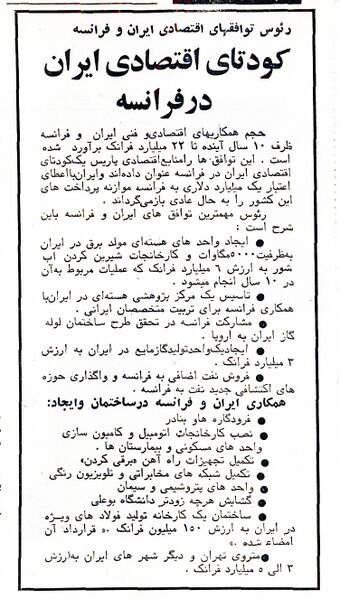 رئوس توافقهای اقتصادی ایران و فرانسه
کودتای اقتصادی ایران
در فرانسه
حجم همکاریهای اقتصادی‌و فنی ایران و فرانسه
ظرف ۱۰ سال آینده تا ۲۲ میلیارد فرانک برآورد شده
است . این توافق ها را منابع اقتصادی پاریس یک‌کودتای
اقتصادی ایران در فرانسه عنوان داده‌اند و ایران‌با‌اعطای
اعتبار یک میلیارد دلاری به فرانسه موازنه پرداخت های
این کشور را به حال عادی بازمی‌گرداند .
رئوس مهمترین توافق های ایران و فرانسه باین
شرح است :
● ایجاد واحد های هسته‌ای مولد برق در ایران
به‌ظرفیت ۵۰۰۰مگاوات و کارخانجات شیرین کردن آب
شور به ارزش ۶ میلیارد فرانک که عملیات مربوط به‌آن
در ۱۰ سال انجام میشود .
● تاسیس یک مرکز پژوهشی هسته‌ای در ایران‌با
همکاری فرانسه برای تربیت متخصصان ایرانی .
● مشارکت فرانسه در تحقق طرح ساختمان لوله
گاز ایران به اروپا .
● ایجادیک‌واحدتولیدگازمایع در ایران به ارزش
۳ میلیارد فرانک .
● فروش نفت اضافی به فرانسه و واگذاری حوزه
های اکتشافی جدید نفت به فرانسه .
همکاری ایران و فرانسه درساختمان وایجاد:
● فرودگاره هاو بنادر
● نصب کارخانجات اتومبیل و کامیون سازی
واحد های مسکونی و بیمارستان ها .
● تکمیل تجهیزات راه آهن «برقی کردن»
● تکمیل شبکه های مخابراتی و تلویزیون رنگی
● واحد های پتروشیمی و سیمان
● گشایش هرچه زودتر دانشگاه بوعلی
● ساختمان یک کارخانه تولید فولاد های ویژه
در ایران به ارزش ۱۵۰ میلیون فرانک .« قرارداد آن
امضاء شده .»
● متروی تهران و دیگر شهر های ایران به‌ارزش
۳ الی ۵ میلیارد فرانک .